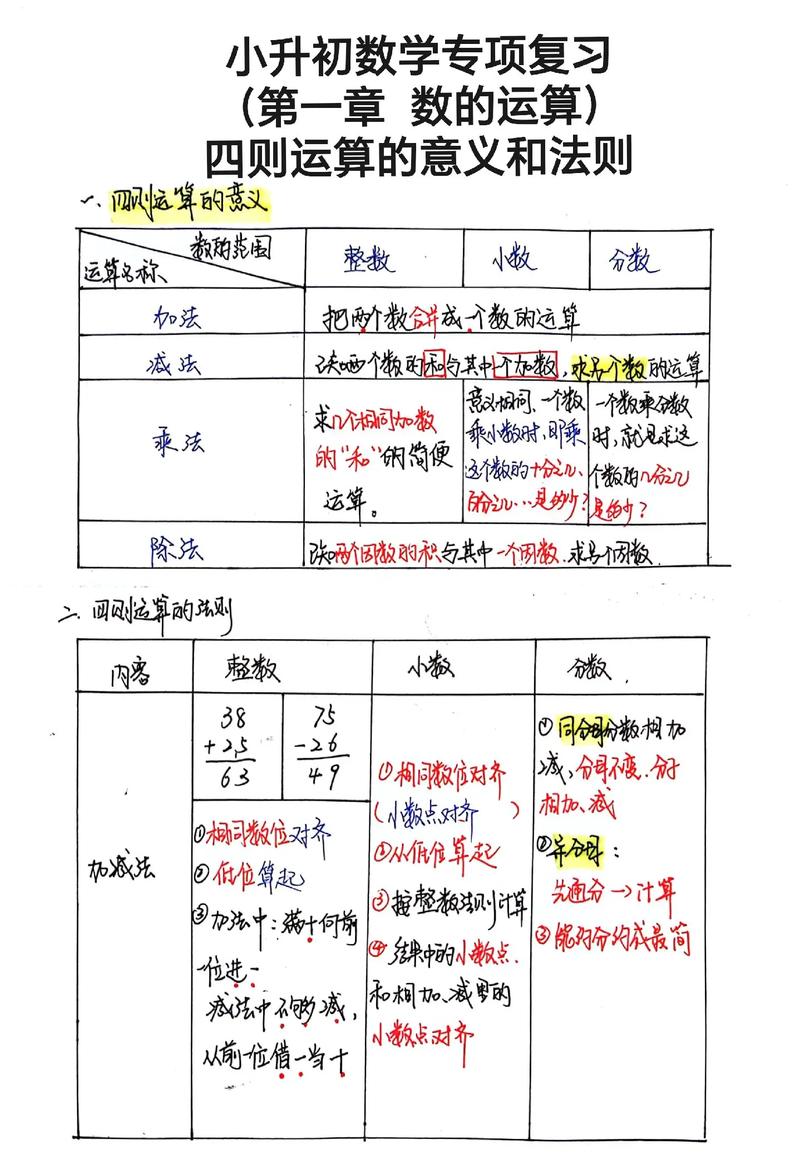 小升初数学专项复习
（第一章 数的运算）
四则运算的意义和法则
一、四则运算的意义
数的范围
运算名称
整数
小数
分数
加法
把两个数合并成一个数的运算
减法
已知两个数的和与其中一个加数，求另个数的运算
乘法
求几个相同加数
的“和”的简便
运算。
意义相同、一个数
乘小数时，即乘
这个数的十分之几、
百分之几…是多少？
一个数乘分数
时，就是求这
个数的几分之几
是多少？
除法
已知两个因数的积与其中一个因数.求另个因数.
二.四则运算的法则
内容
整数
小数
分数.
加减法
38
+25
63
75
-26
49
①相同数位对齐
②低位算起
③加法中：满十向前
一位进一
减法中不够减，
从前一位借一当十
①相同数位对齐
（小数点对齐）
②从低位算起
③按整数法则计算
④结果中的小数点.
和相加、减里的
小数点对齐
①同分母分数相加
减，分母不变.分子
相加、减
②异分母：
先通分→计算
③能约分约成最简